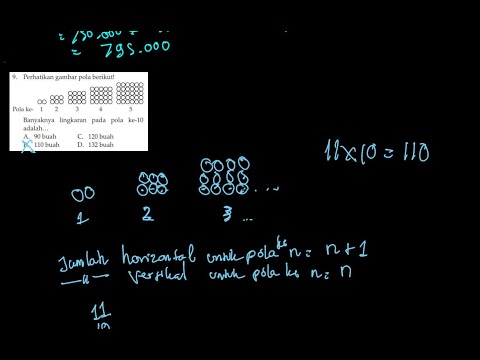 = 795.000
9. Perhatikan gambar pola berikut!
Pola ke- 1 2 3 4 5
Banyaknya lingkaran pada pola ke-10
adalah...
A. 90 buah C. 120 buah
B. 110 buah D. 132 buah
11 x 10 = 110
1 2 3 ...
Jumlah horizontal untuk pola ke n = n + 1
—"— Vertikal untuk pola ke n = n
11
10